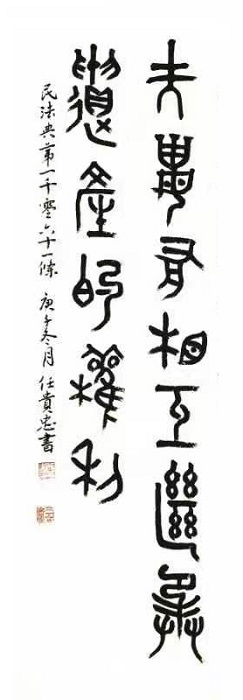 夫妻有相互繼承
遺產的權利
民法典第一千零六十一條 庚子冬月 任貴忠書